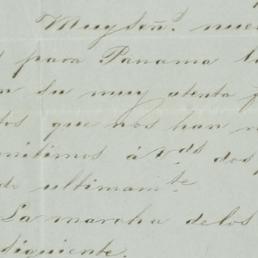 Muy señ.s nue
para Panama
su muy atenta
que nos han
mitimos á Vds dos
ultimamte
La marcha de los
siguiente.